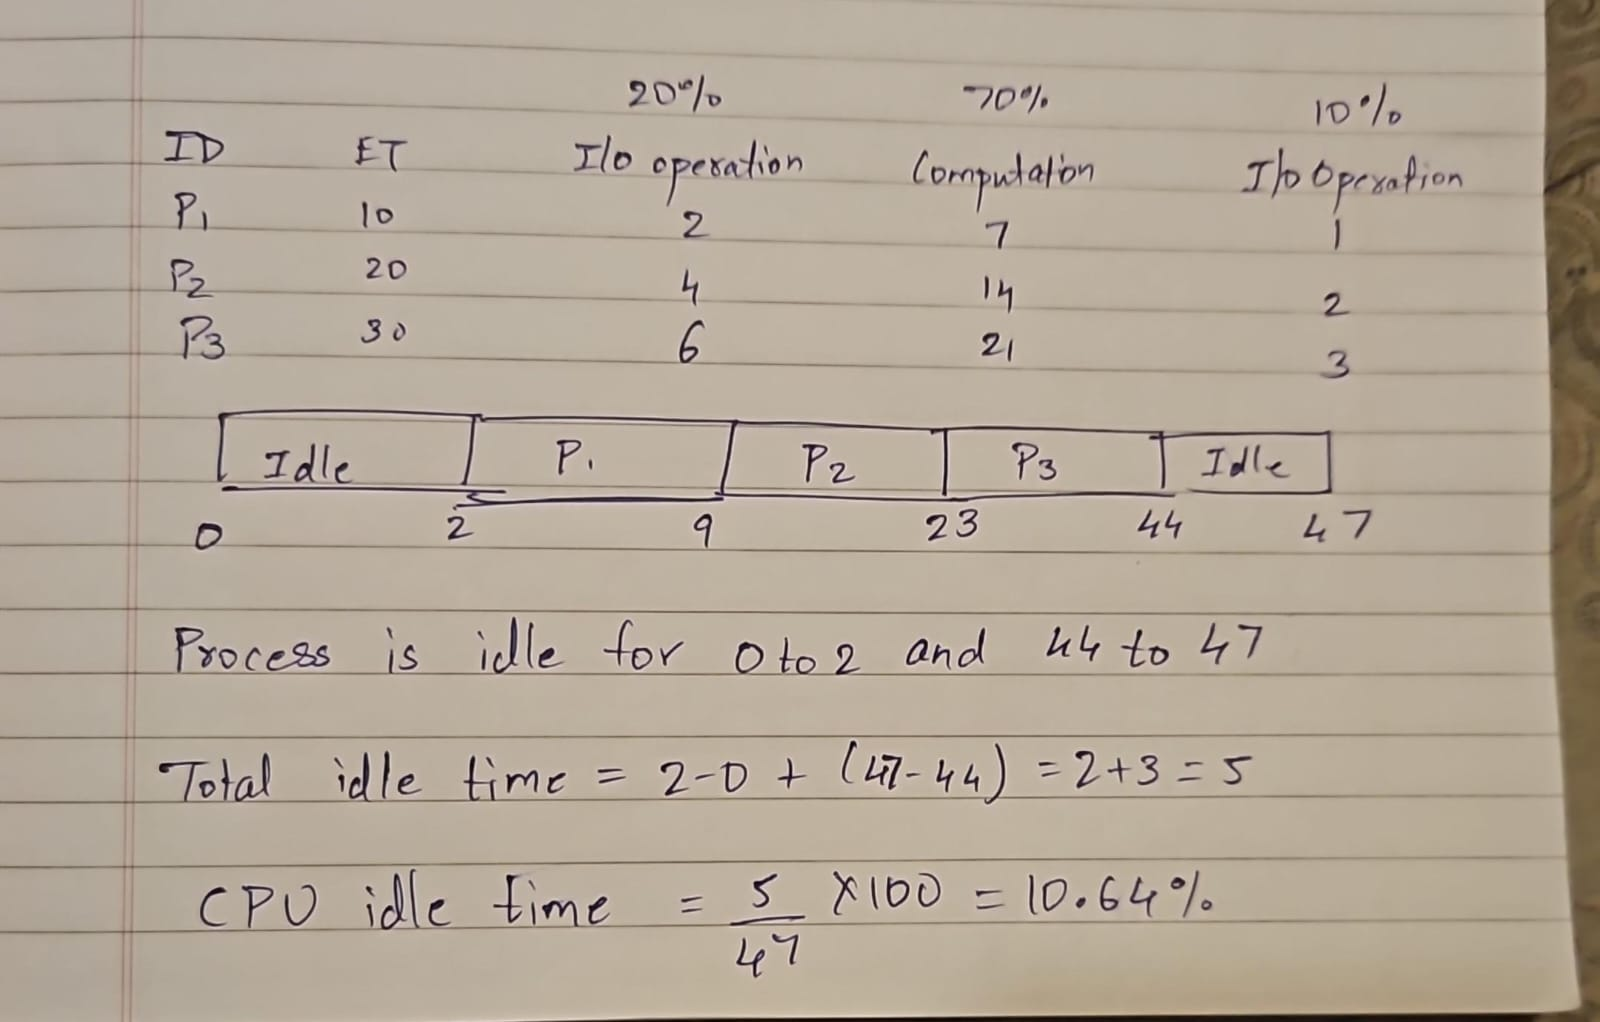 20% 70% 10%
ID ET I/o operation Computation I/o Operation
P1 10 2 7 1
P2 20 4 14 2
P3 30 6 21 3
Idle P1 P2 P3 Idle
0 2 9 23 44 47
Process is idle for 0 to 2 and 44 to 47
Total idle time = 2-0 + (47-44) = 2+3 = 5
CPU idle time = 5/47 X100 = 10.64%